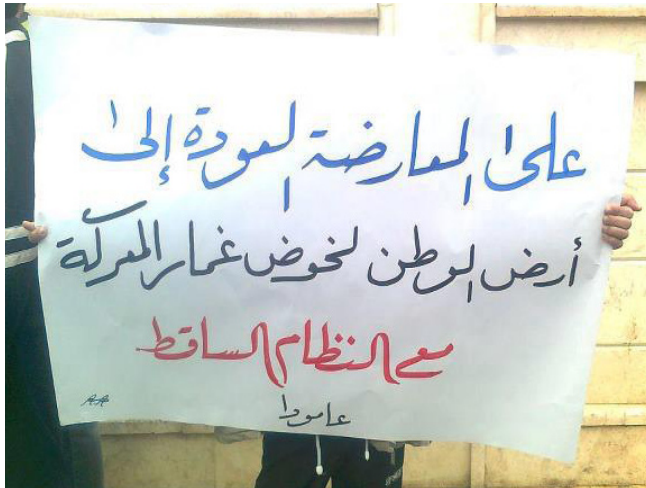 على المعارضة العودة إلى
أرض الوطن لخوض غمار المعركة
مع النظام الساقط
عامودا